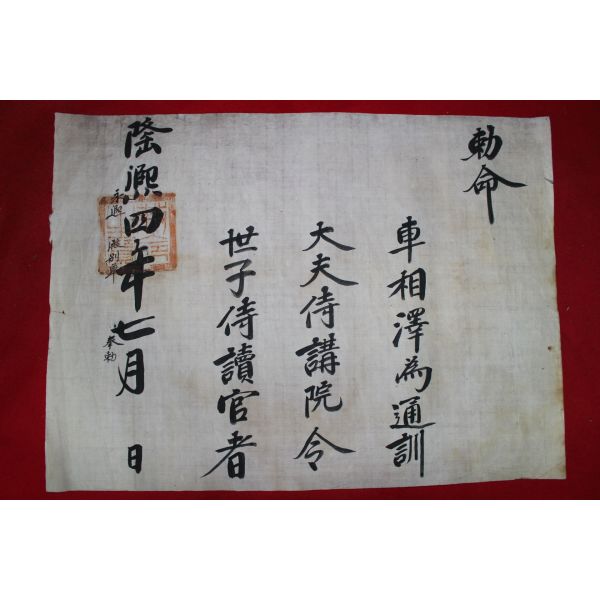 勅命
車相澤為通訓
大夫侍講院令
世子侍讀官者
隆熙四年七月 日
奉勅